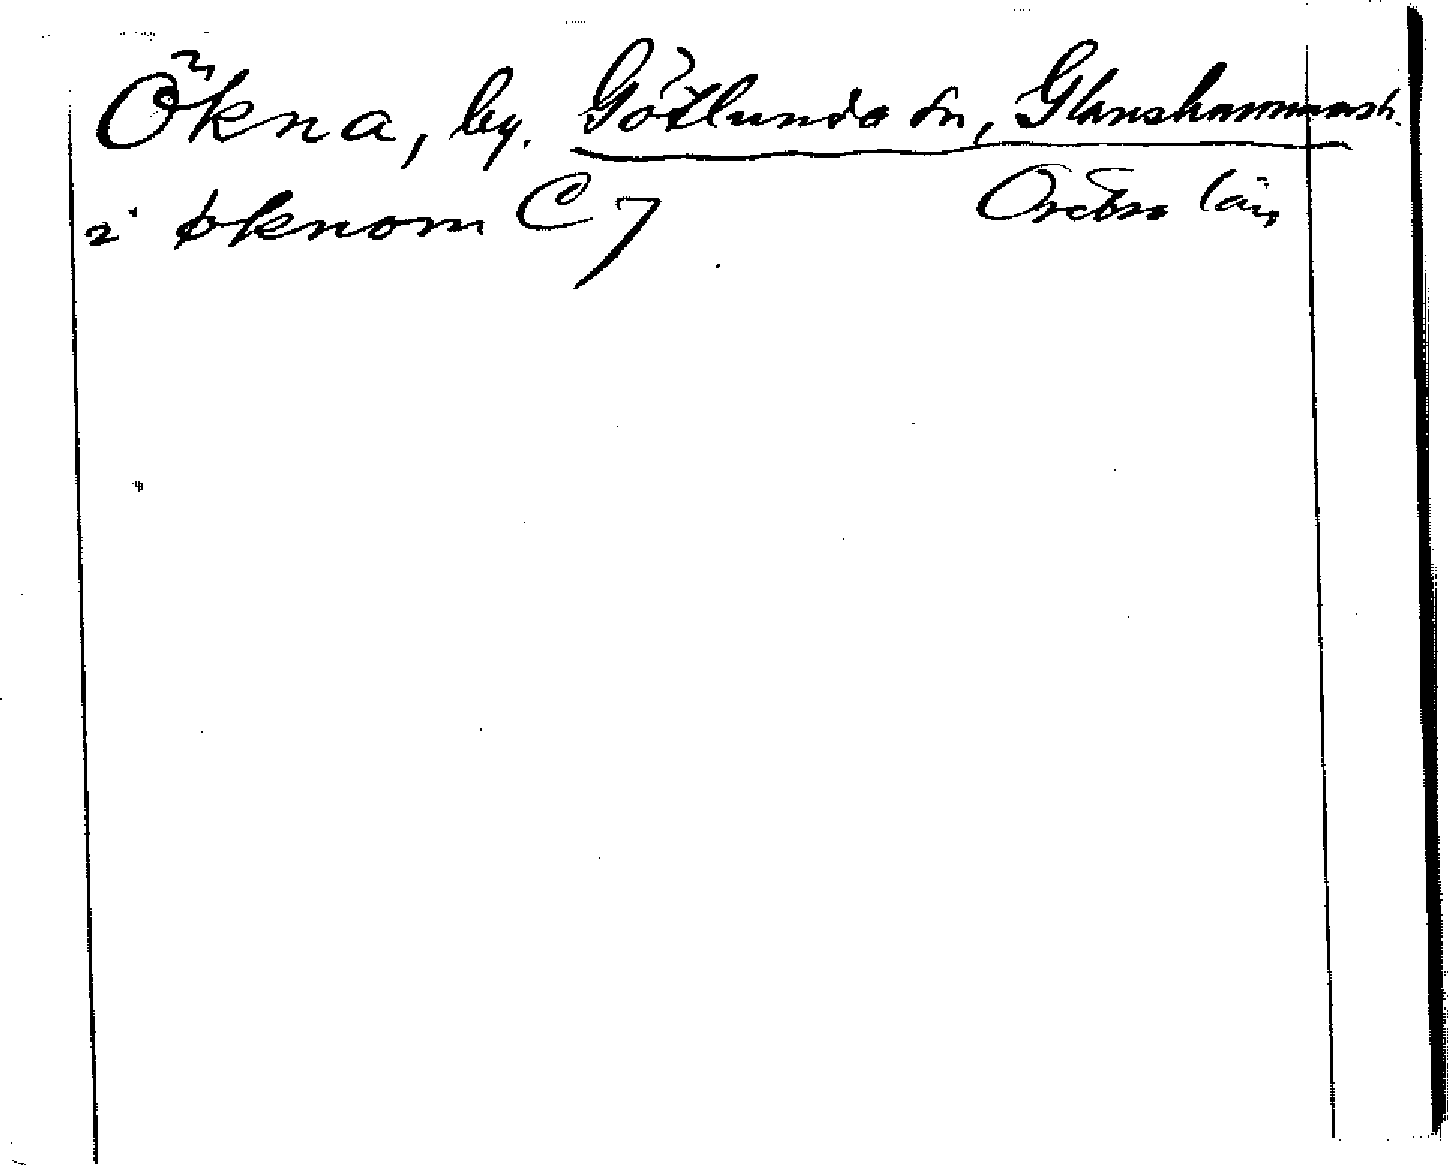 Ökna, by. Götlunda sn, Glanshammarsh.
i øknom C 7 Örebro län